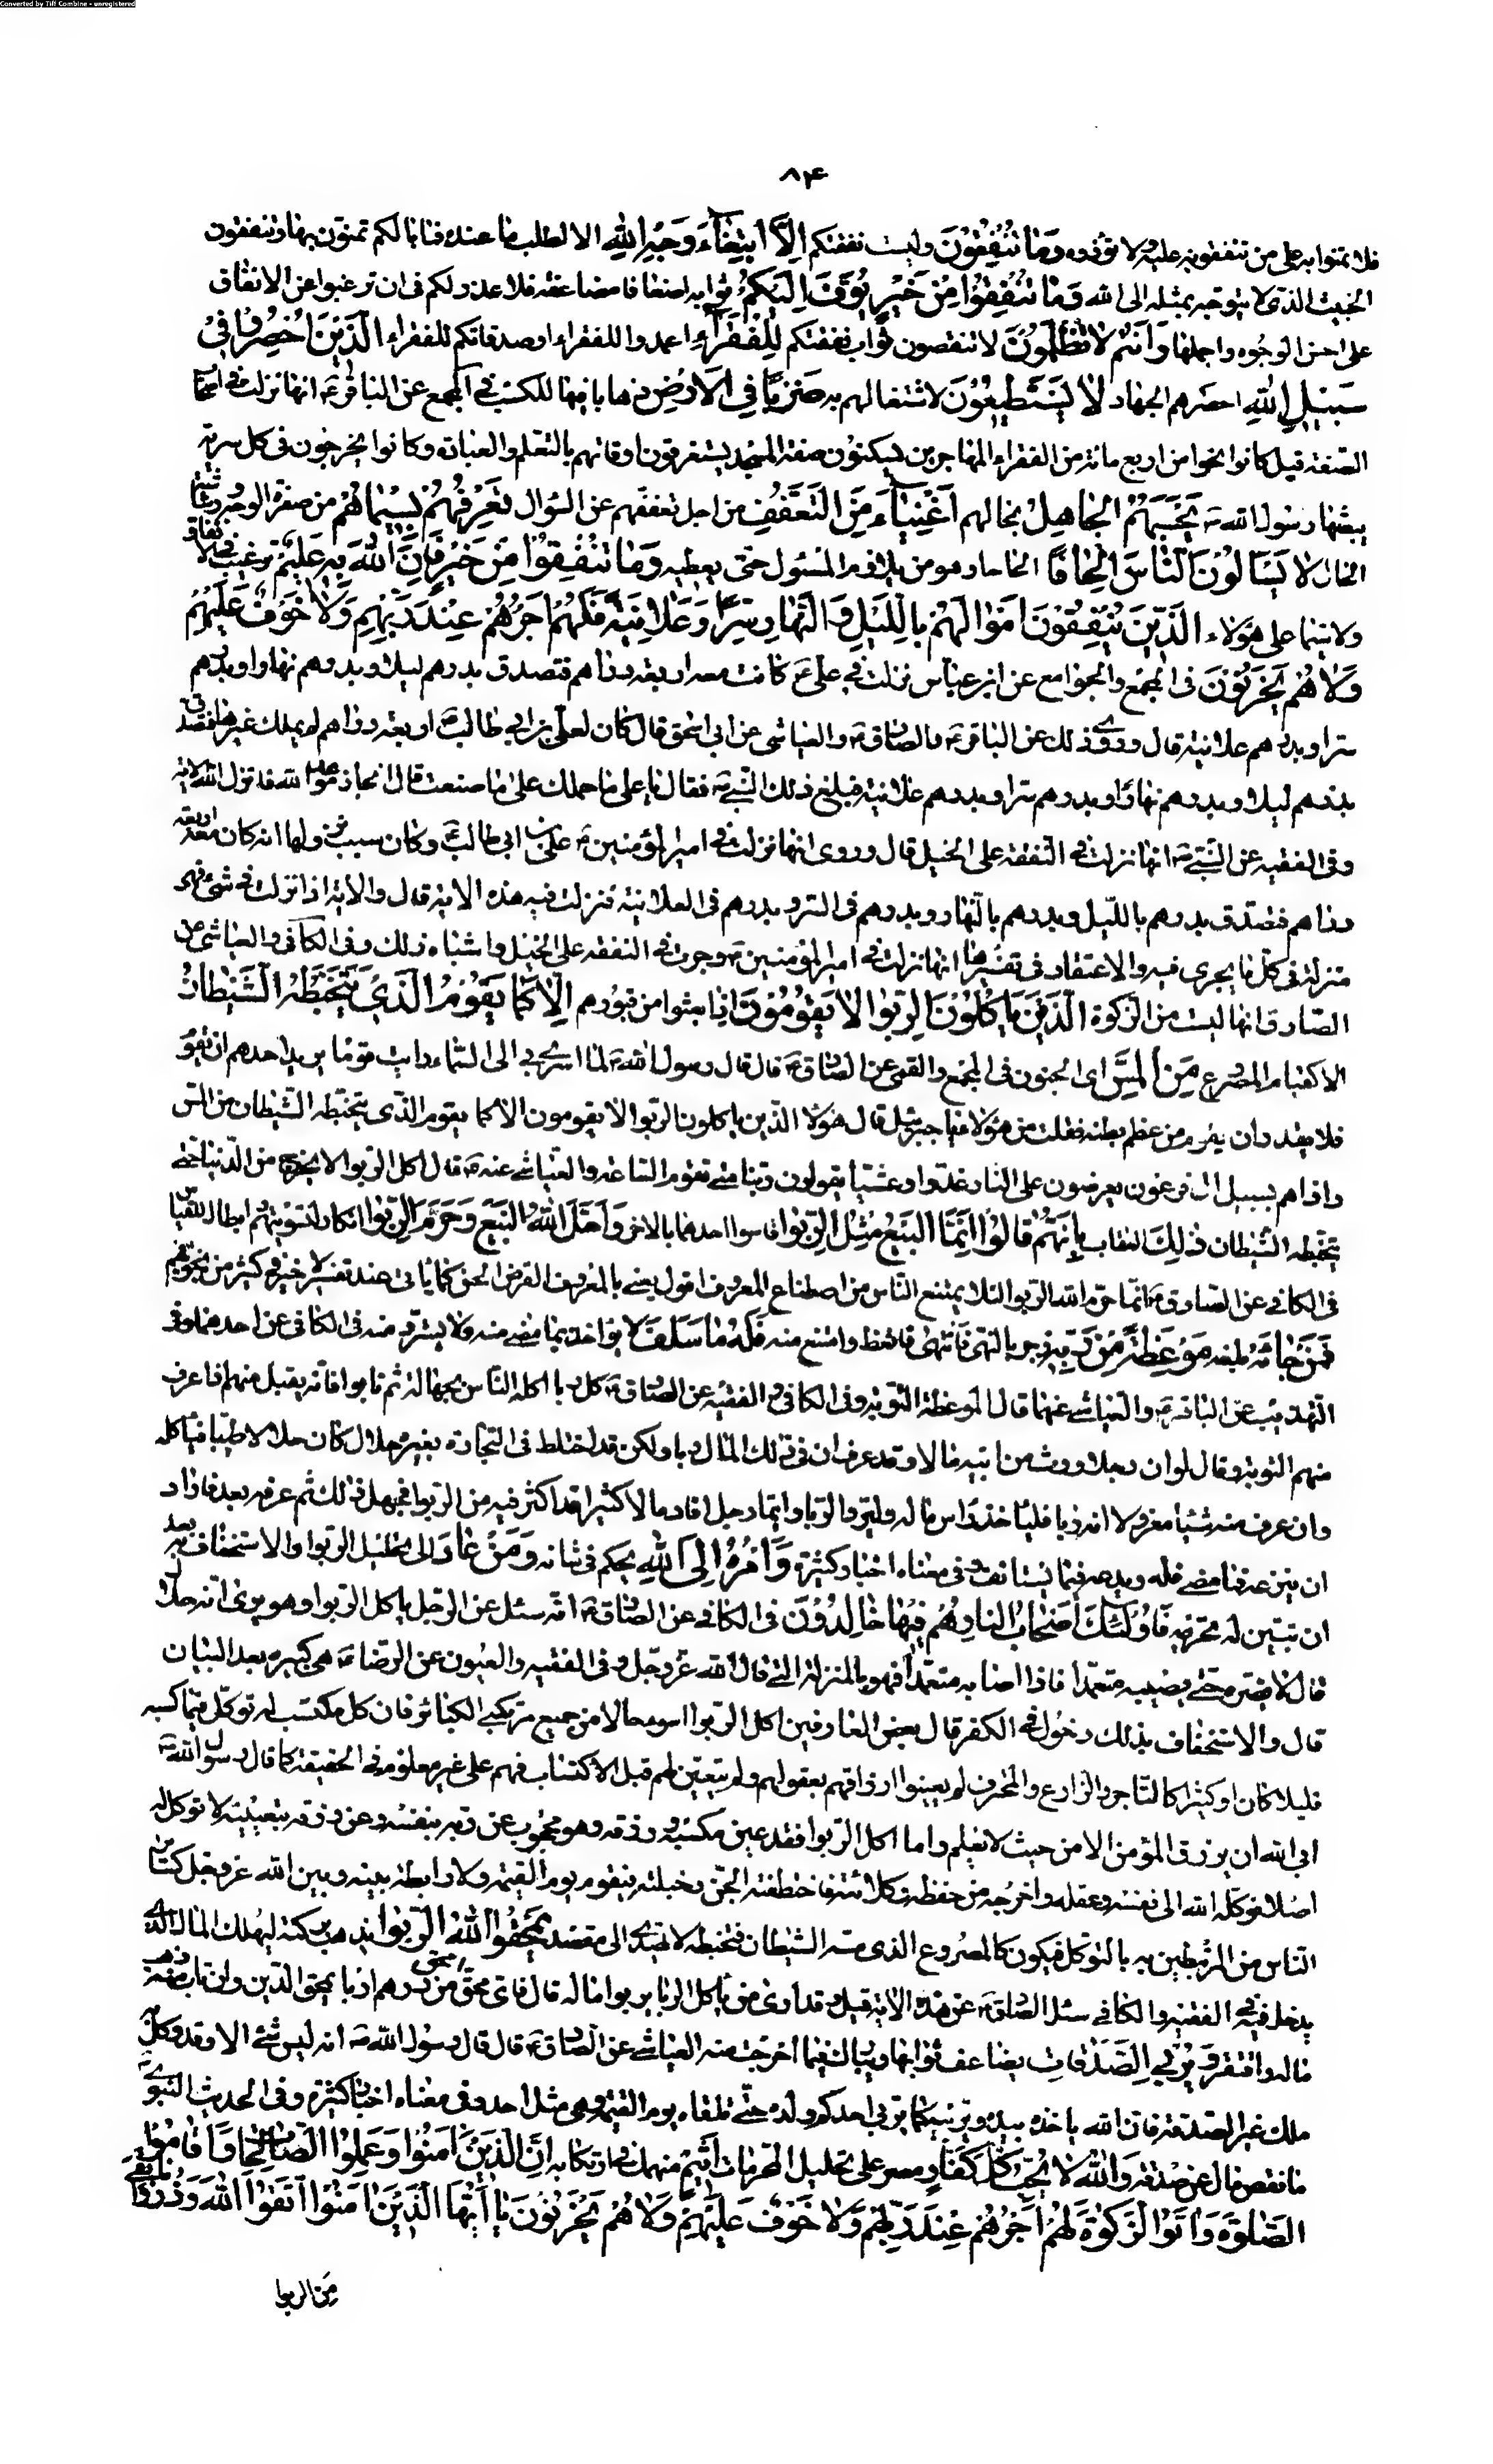 Converted by Tiff Combine - unregistered
۸۴
فلا تمنوا به على من تنفقونه عليه ولا تؤذوه وَمَا تُنْفِقُونَ وليست نفقتكم اِلَّا ابْتِغَاءَ وَجْهِ اللهِ الا لطلب ما عنده فما بالكم تمنون بها وتنفقون
الخبيث الذى لا يتوجه بمثله الى الله وَمَا تُنْفِقُوا مِنْ خَيْرٍ يُوَفَّ اِلَيْكُمْ ثوابه اضعافا مضاعفة فلا عذر لكم فى ان ترغبوا عن الانفاق
على احسن الوجوه واجملها وَاَنْتُمْ لَا تُظْلَمُونَ لا تنقصون ثواب نفقتكم لِلْفُقَرَاءِ اعمدوا للفقراء او صدقاتكم للفقراء الَّذِينَ اُحْصِرُوا فِى
سَبِيلِ اللهِ احصرهم الجهاد لَا يَسْتَطِيعُونَ لاشتغالهم به ضَرْبًا فِى الْاَرْضِ ذهابا فيها للكسب فى المجمع عن الباقر ع انها نزلت فى اصحاب
الصفة قيل كانوا نحوا من اربع مائة من الفقراء المهاجرين يسكنون صفة المسجد يستغرقون اوقاتهم بالتعلم والعبادة وكانوا يخرجون فى كل سرية
يبعثها رسول الله ص يَحْسَبُهُمُ الْجَاهِلُ بحالهم اَغْنِيَاءَ مِنَ التَّعَفُّفِ من اجل تعففهم عن السؤال تَعْرِفُهُمْ بِسِيمَاهُمْ من صفرة الوجوه ورثاثة
الحال لَا يَسْاَلُونَ النَّاسَ اِلْحَافًا الحاحا وهو من يلازم المسئول حتى يعطيه وَمَا تُنْفِقُوا مِنْ خَيْرٍ فَاِنَّ اللهَ بِهِ عَلِيمٌ ترغيب فى الانفاق
ولا سيما على هؤلاء الَّذِينَ يُنْفِقُونَ اَمْوَالَهُمْ بِاللَّيْلِ وَالنَّهَارِ سِرًّا وَعَلَانِيَةً فَلَهُمْ اَجْرُهُمْ عِنْدَ رَبِّهِمْ وَلَا خَوْفٌ عَلَيْهِمْ
وَلَا هُمْ يَحْزَنُونَ فى المجمع والجوامع عن ابن عباس نزلت فى على ع كانت معه اربعة دراهم فتصدق بدرهم ليلا وبدرهم نهارا وبدرهم
سرا وبدرهم علانية قال وروى ذلك عن الباقر ع والصادق ع والعياشى عن ابى اسحق قال كان لعلى بن ابى طالب ع اربعة دراهم لم يملك غيرها فتصدق
بدرهم ليلا وبدرهم نهارا وبدرهم سرا وبدرهم علانية فبلغ ذلك النبى ص فقال يا على ما حملك على ما صنعت قال انجاز موعد الله فانزل الله الاية
وفى الفقيه عن النبى ص انها نزلت فى النفقة على الخيل قال وروى انها نزلت فى امير المؤمنين ع على بن ابى طالب ع وكان سبب نزولها انه كان معه اربعة
دراهم فتصدق بدرهم بالليل وبدرهم بالنهار وبدرهم فى السر وبدرهم فى العلانية فنزلت فيه هذه الاية قال والاية اذا نزلت فى شئ فهى
منزلة فى كل ما يجرى فيه والاعتقاد فى تفسيرها انها نزلت فى امير المؤمنين ع وجرت فى النفقة على الخيل واشباه ذلك وفى الكافى والعياشى عن
الصادق انها ليست من الزكوة الَّذِينَ يَاْكُلُونَ الرِّبٰوا لَا يَقُومُونَ اذا بعثوا من قبورهم اِلَّا كَمَا يَقُومُ الَّذِى يَتَخَبَّطُهُ الشَّيْطَانُ
الا كقيام المصروع مِنَ الْمَسِّ اى الجنون فى المجمع والقمى عن الصادق ع قال قال رسول الله ص لما اسرى بى الى السماء رايت قوما يريد احدهم ان يقوم
فلا يقدر ان يقوم من عظم بطنه فقلت من هؤلاء يا جبرئيل قال هؤلاء الذين ياكلون الربوا لا يقومون الا كما يقوم الذى يتخبطه الشيطان من المس
واذا هم بسبيل ال فرعون يعرضون على النار غدوا وعشيا يقولون ربنا متى تقوم الساعة والعياشى عنه ع قال اكل الربوا لا يخرج من الدنيا حتى
يتخبطه الشيطان ذٰلِكَ العقاب بِاَنَّهُمْ قَالُوا اِنَّمَا الْبَيْعُ مِثْلُ الرِّبٰوا قاسوا احدهما بالاخر وَاَحَلَّ اللهُ الْبَيْعَ وَحَرَّمَ الرِّبٰوا انكار لتسويتهم ابطال للقياس
فى الكافى عن الصادق ع انما حرم الله الربوا لئلا يمتنع الناس من اصطناع المعروف اقول يعنى بالمعروف القرض الحسن كما ياتى عند تفسير لا خير فى كثير من نجويهم
فَمَنْ جَاءَهُ بلغه مَوْعِظَةٌ مِنْ رَبِّهِ زجر بالنهى فَانْتَهٰى فاتعظ وامتنع منه فَلَهُ مَا سَلَفَ لا يؤاخذ بما مضى منه ولا يسترد منه فى الكافى عن احدهما وفى
التهذيب عن الباقر ع والعياشى عنهما قال الموعظة التوبة وفى الكافى والفقيه عن الصادق ع كل ربا اكله الناس بجهالة ثم تابوا فانه يقبل منهم اذا عرف
منهم التوبة وقال لو ان رجلا ورث من ابيه مالا وقد عرف ان فى ذلك المال ربا ولكن قد اختلط فى التجارة بغيره حلال كان حلالا طيبا فلياكله
وان عرف منه شيئا معزولا انه ربا فلياخذ راس ماله وليرد الربا وايما رجل افاد مالا كثيرا قد اكثر فيه من الربوا فجهل ذلك ثم عرفه بعد فاراد
ان ينزعه فما مضى فله ويدعه فيما يستانف وفى معناه اخبار كثيرة وَاَمْرُهُ اِلَى اللهِ يحكم فى شانه وَمَنْ عَادَ الى تحليل الربوا والاستخفاف به بعد
ان تبين له تحريمه فَاُولٰئِكَ اَصْحَابُ النَّارِ هُمْ فِيهَا خَالِدُونَ فى الكافى عن الصادق ع انه سئل عن الرجل ياكل الربوا وهو يرى انه حلال
قال لا يضره حتى يصيبه متعمدا فاذا اصابه متعمدا فهو بالمنزلة التى قال الله عز وجل وفى الفقيه والعيون عن الرضا ع هى كبيرة بعد البيان
قال والاستخفاف بذلك دخول فى الكفر قال بعض العارفين اكل الربوا اسوء حالا من جميع مرتكبى الكبائر فان كل مكتسب له توكل فيما كسبه
قليلا كان او كثيرا كالتاجر والزارع والمحترف لم يعينوا ارزاقهم بعقولهم ولم يتعين لهم قبل الاكتساب فهم على غير معلوم فى الحقيقة كما قال رسول الله ص
ابى الله ان يرزق المؤمن الا من حيث لا يعلم واما اكل الربوا فقد عين مكسبه ورزقه وهو محجوب عن ربه بنفسه وعن رزقه بتعيينه لا توكل له
اصلا فوكله الله الى نفسه وعقله واخرجه من حفظه وكلائته فاختطفته الجن وخبلته فيقوم يوم القيمة ولا رابطة بينه وبين الله عز وجل كسائر
الناس المرتبطين به بالتوكل فيكون كالمصروع الذى مسه الشيطان فتخبطه لا يهتدى الى مقصد يَمْحَقُ اللهُ الرِّبٰوا يذهب بركته ويهلك المال الذى
يدخل فيه فى الفقيه والكافى سئل الصادق ع عن هذه الاية قيل وقد ارى من ياكل الربا يربوا ماله قال فاى محق امحق من درهم ربا يمحق الدين وان تاب منه ذهب
ماله وافتقر وَيُرْبِى الصَّدَقَاتِ يضاعف ثوابها ويبارك فيما اخرجت منه العياشى عن الصادق ع قال قال رسول الله ص انه ليس شئ الا وقد وكل به
ملك غير الصدقة فان الله ياخذه بيده ويربيه كما يربى احدكم ولده حتى تلقاه يوم القيمة وهى مثل احد وفى معناه اخبار كثيرة وفى الحديث النبوى
ما نقص مال عن صدقة وَاللهُ لَا يُحِبُّ كُلَّ كَفَّارٍ مصر على تحليل المحرمات اَثِيمٍ منهمك فى ارتكابه اِنَّ الَّذِينَ اٰمَنُوا وَعَمِلُوا الصَّالِحَاتِ وَاَقَامُوا
الصَّلٰوةَ وَاٰتَوُا الزَّكٰوةَ لَهُمْ اَجْرُهُمْ عِنْدَ رَبِّهِمْ وَلَا خَوْفٌ عَلَيْهِمْ وَلَا هُمْ يَحْزَنُونَ يَا اَيُّهَا الَّذِينَ اٰمَنُوا اتَّقُوا اللهَ وَذَرُوا مَا بَقِىَ
مِنَ الربوا